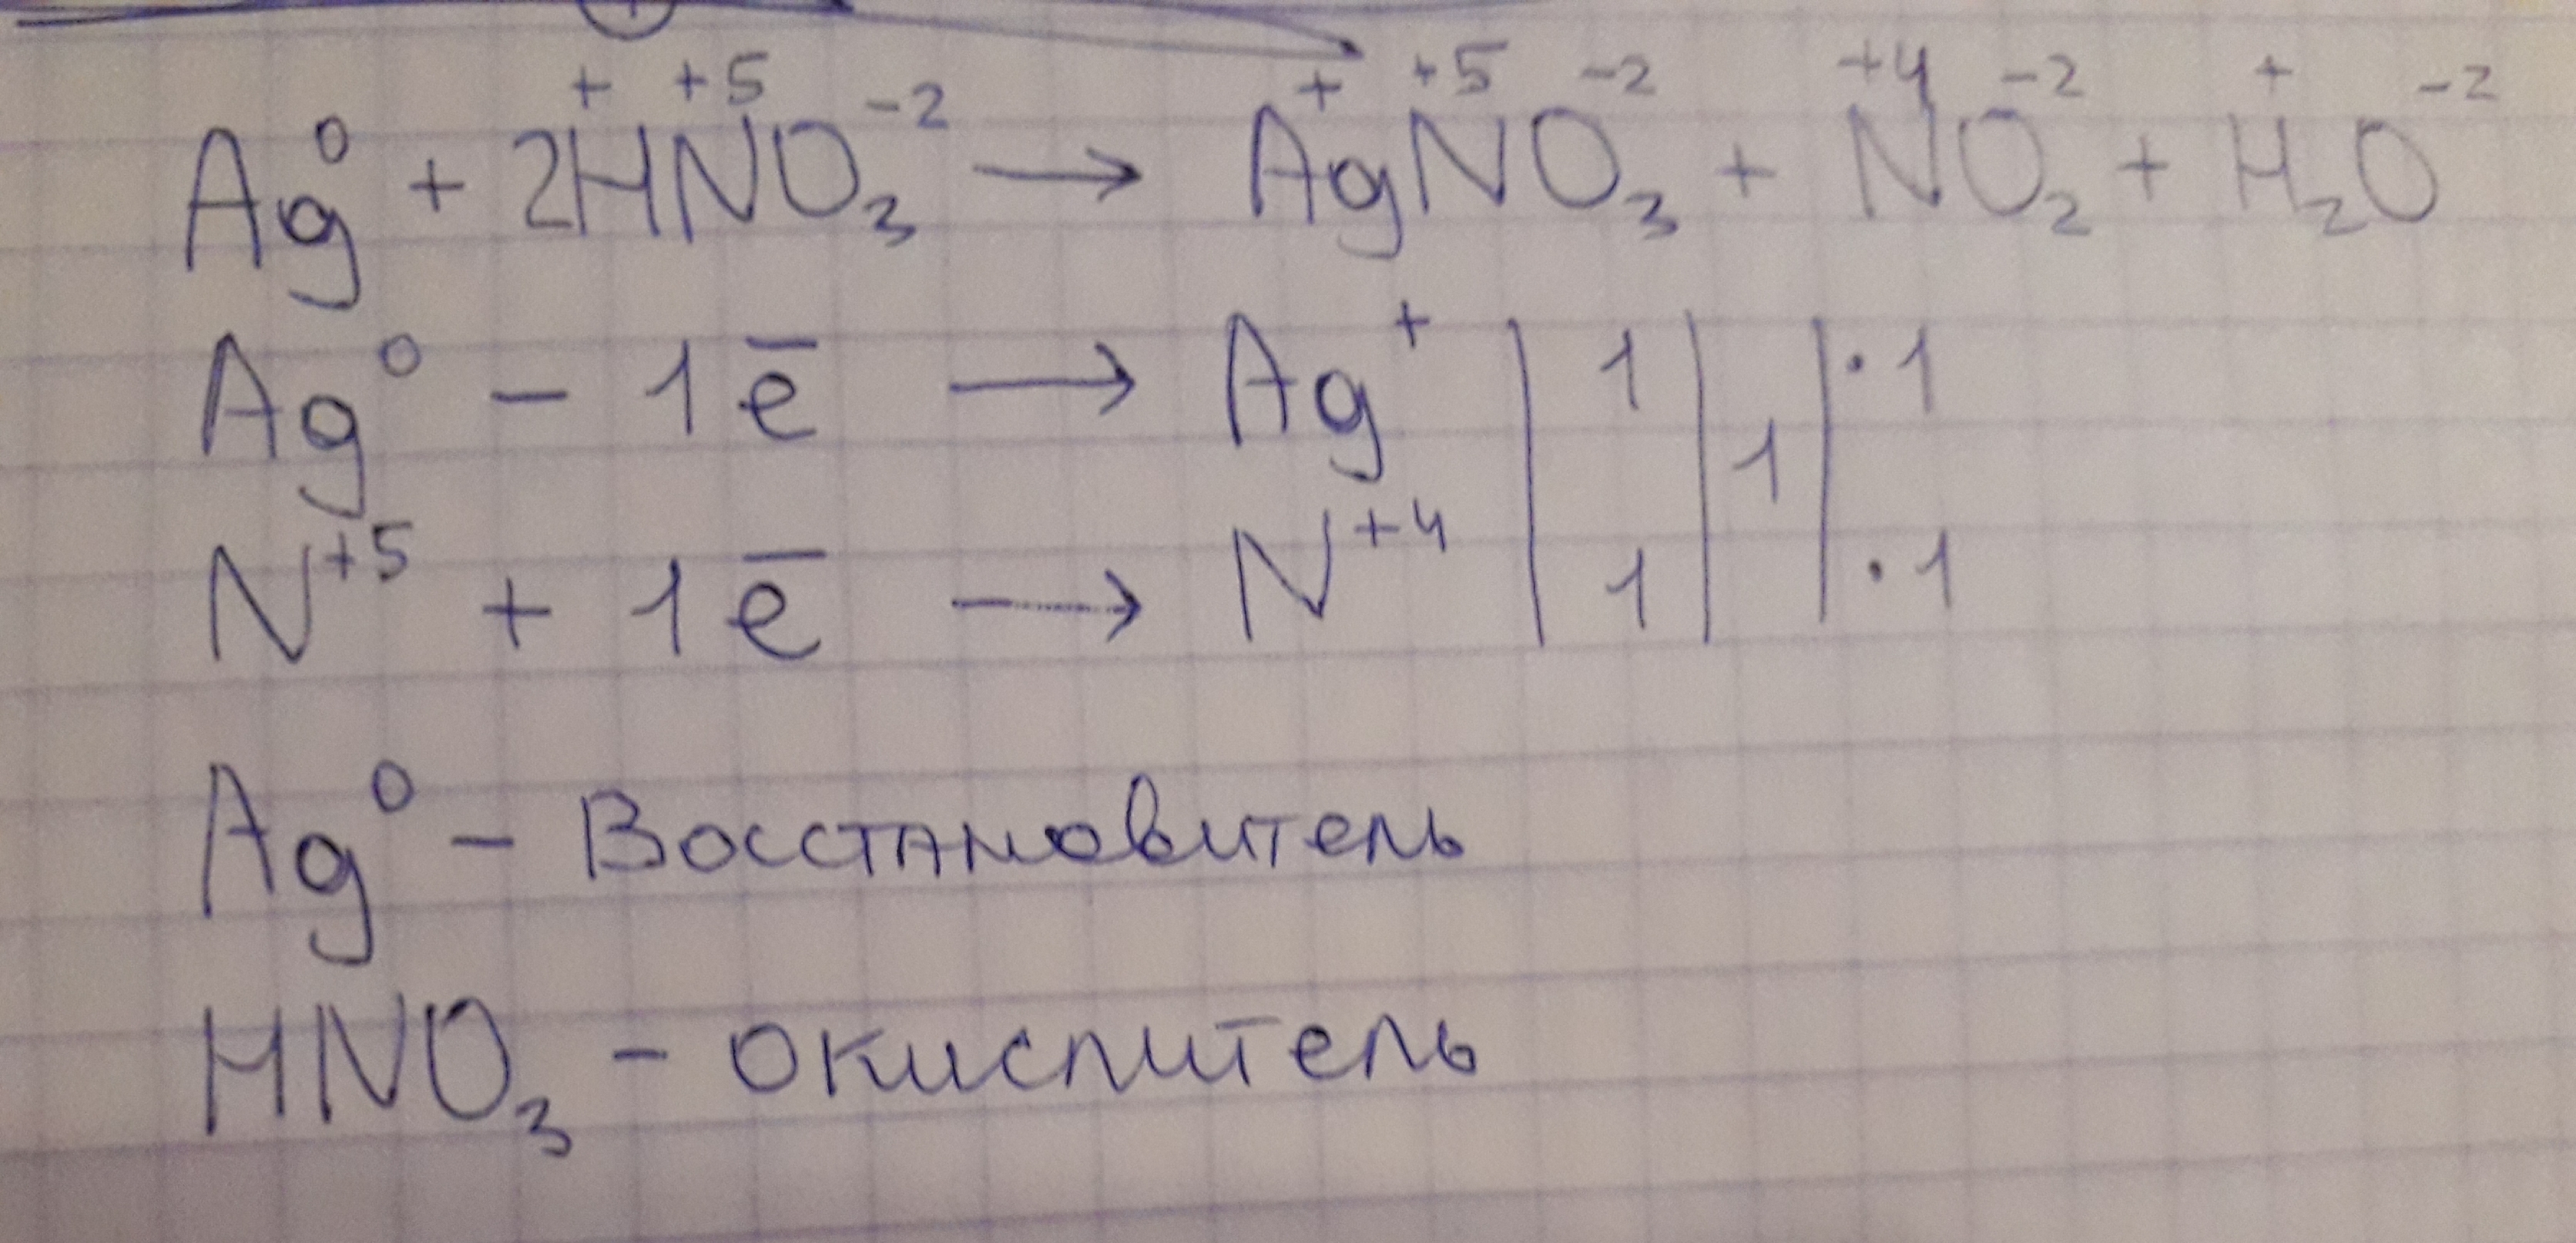 Ag⁰ + 2H⁺N⁺⁵O₃⁻² → Ag⁺N⁺⁵O₃⁻² + N⁺⁴O₂⁻² + H₂⁺O⁻²
Ag⁰ - 1ē → Ag⁺ | 1 | | · 1
1
N⁺⁵ + 1ē → N⁺⁴ | 1 | | · 1
Ag⁰ - Восстановитель
HNO₃ - окислитель